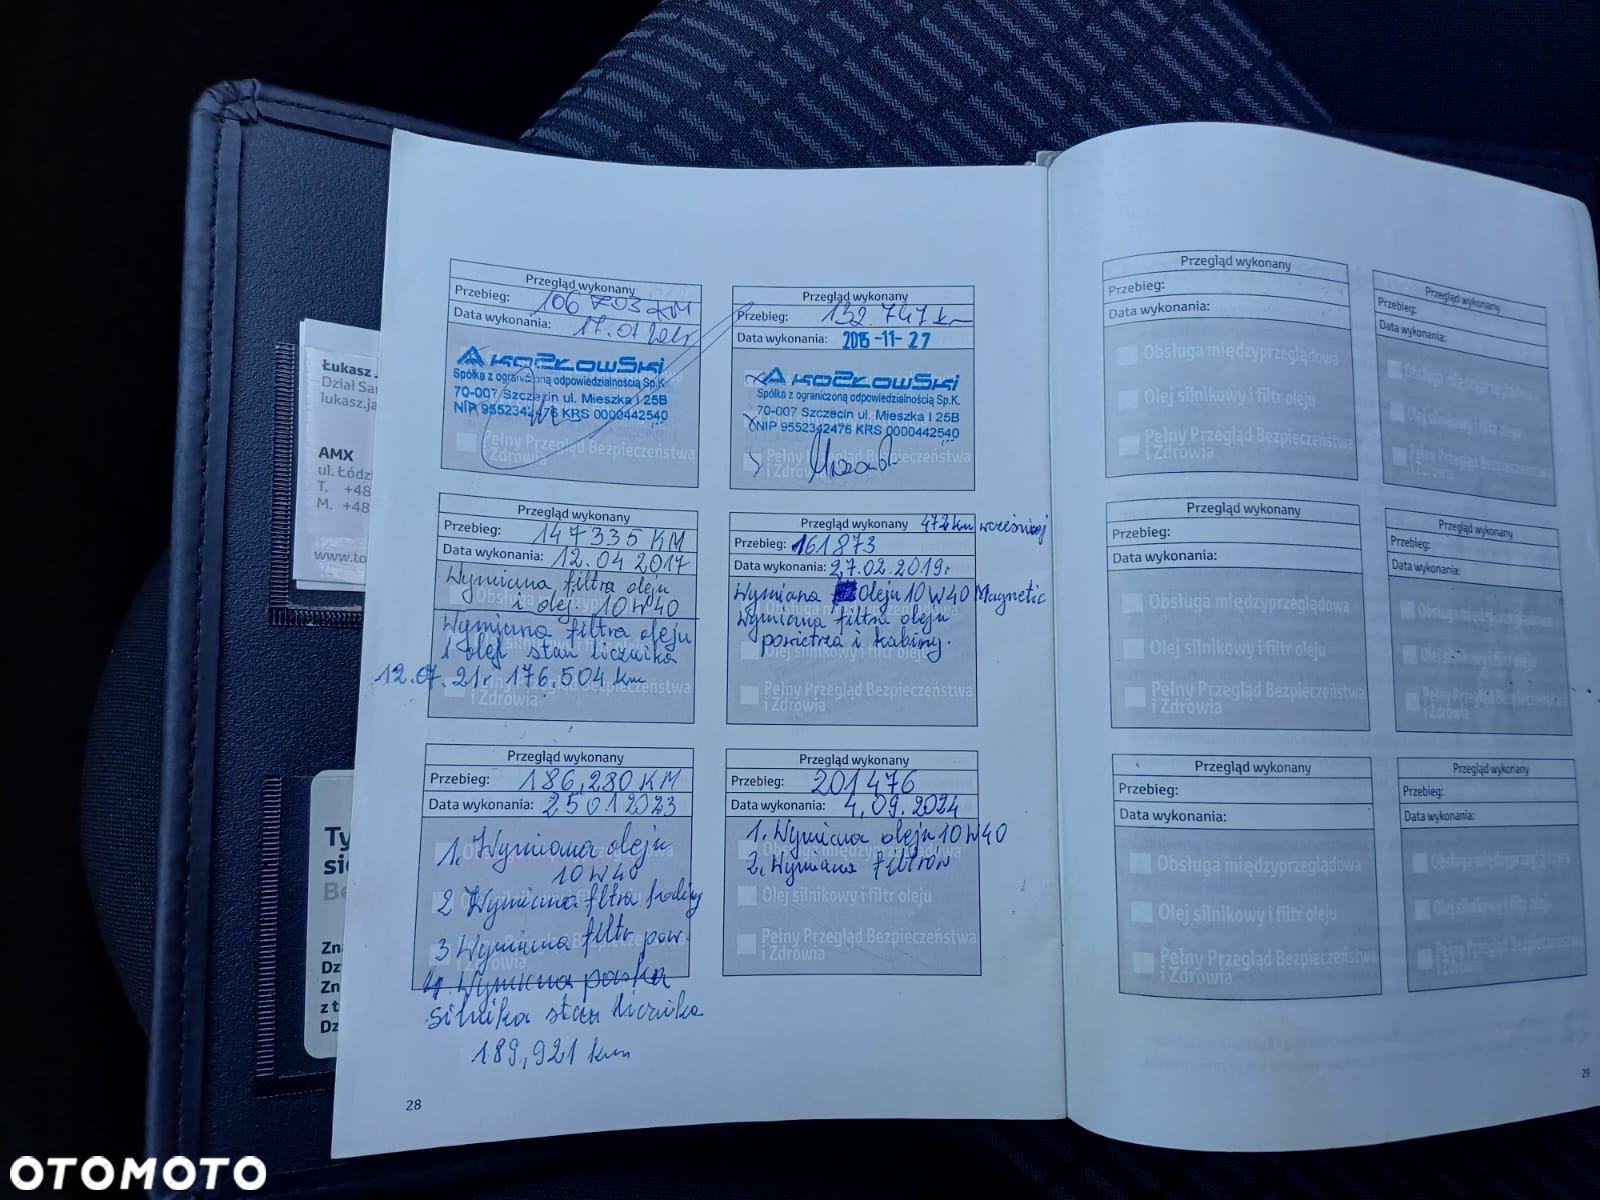 Łukasz J
Dział Sa
lukasz.ja
AMX
ul. Łódz
T. +48
M. +48
www.to
Ty
sie
Be
Zna
Dz
Zn
z t
Dz
Przegląd wykonany
Przebieg: 106 703 KM
Data wykonania: 17.01.2015
AKOZŁOWSKI
Spółka z ograniczoną odpowiedzialnością Sp.K.
70-007 Szczecin ul. Mieszka I 25B
NIP 9552342476 KRS 0000442540
Pełny Przegląd Bezpieczeństwa
i Zdrowia
Przegląd wykonany
Przebieg: 132.747 km
Data wykonania: 2015-11-27
AKOZŁOWSKI
Spółka z ograniczoną odpowiedzialnością Sp.K.
70-007 Szczecin ul. Mieszka I 25B
NIP 9552342476 KRS 0000442540
Przegląd wykonany
Przebieg: 147335 KM
Data wykonania: 12.04.2017
Wymiana filtra oleju
i olej 10W40
Wymiana filtra oleju
i olej stan licznika
12.07.21r 176.504 km
Pełny Przegląd Bezpieczeństwa
i Zdrowia
Przegląd wykonany 472 km wcześniej
Przebieg: 161873
Data wykonania: 27.02.2019r
Wymiana Oleju 10W40 Magnetic
Wymiana filtra oleju
powietrza i kabiny.
Olej silnikowy i filtr oleju
Pełny Przegląd Bezpieczeństwa
i Zdrowia
Przegląd wykonany
Przebieg: 186,280 KM
Data wykonania: 25 01 2023
1. Wymiana oleju
10W40
2 Wymiana filtra
3 Wymiana filtr pow.
i Zdrowia
4. Wymiana paska
Silnika stan licznika
189,921 km
Przegląd wykonany
Przebieg: 201476
Data wykonania: 4.09.2024
1. Wymiana oleju 10W40
2. Wymiana filtrów
Olej silnikowy i filtr oleju
Pełny Przegląd Bezpieczeństwa
i Zdrowia
28
Przegląd wykonany
Przebieg:
Data wykonania:
Obsługa międzyprzeglądowa
Olej silnikowy i filtr oleju
Pełny Przegląd Bezpieczeństwa
i Zdrowia
Przegląd wykonany
Przebieg:
Data wykonania:
Obsługa międzyprzeglądowa
Olej silnikowy i filtr oleju
Pełny Przegląd Bezpieczeństwa
i Zdrowia
Przegląd wykonany
Przebieg:
Data wykonania:
Obsługa międzyprzeglądowa
Olej silnikowy i filtr oleju
Pełny Przegląd Bezpieczeństwa
i Zdrowia
Przegląd wykonany
Przebieg:
Data wykonania:
Obsługa międzyprzeglądowa
Olej silnikowy i filtr oleju
Pełny Przegląd Bezpieczeństwa
i Zdrowia
Przegląd wykonany
Przebieg:
Data wykonania:
Obsługa międzyprzeglądowa
Olej silnikowy i filtr oleju
Pełny Przegląd Bezpieczeństwa
i Zdrowia
Przegląd wykonany
Przebieg:
Data wykonania:
Obsługa międzyprzeglądowa
Olej silnikowy i filtr oleju
Pełny Przegląd Bezpieczeństwa
i Zdrowia
29
OTOMOTO